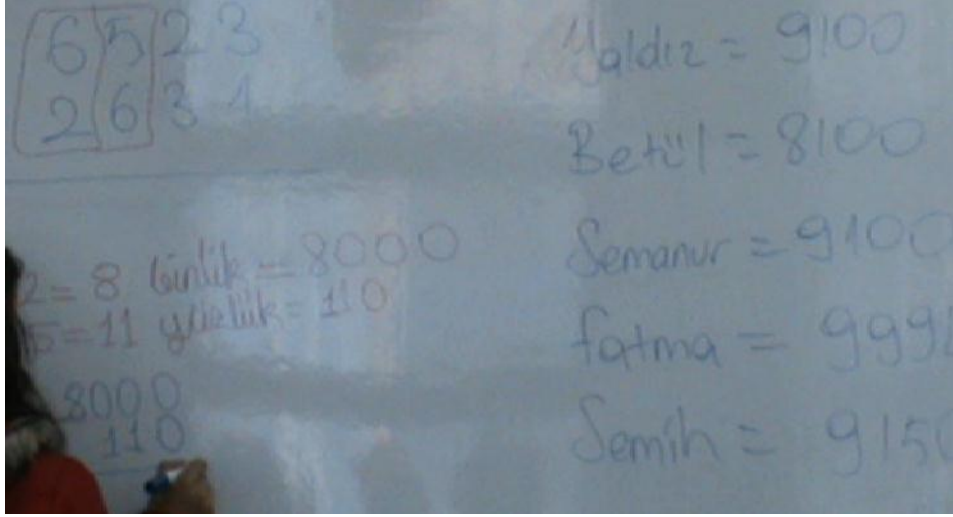 6523
2631
2 = 8 binlik = 8000
5 = 11 yüzlük = 110
8000
110
Yaldız = 9100
Betül = 8100
Semanur = 9100
fatma = 999
Semih = 9150